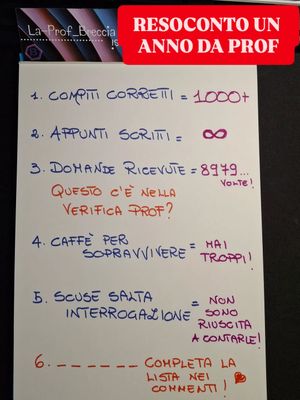 La_Prof_Breccia
RESOCONTO UN
ANNO DA PROF
1. COMPITI CORRETTI = 1000+
2. APPUNTI SCRITTI = ∞
3. DOMANDE RICEVUTE = 8979...
VOLTE!
QUESTO C'È NELLA
VERIFICA PROF?
4. CAFFÈ PER
SOPRAVVIVERE = MAI
TROPPI!
5. SCUSE SALTA
INTERROGAZIONE = NON
SONO
RIUSCITA
A CONTARLE!
6. _ _ _ _ _ _ _ COMPLETA LA
LISTA NEI
COMMENTI!